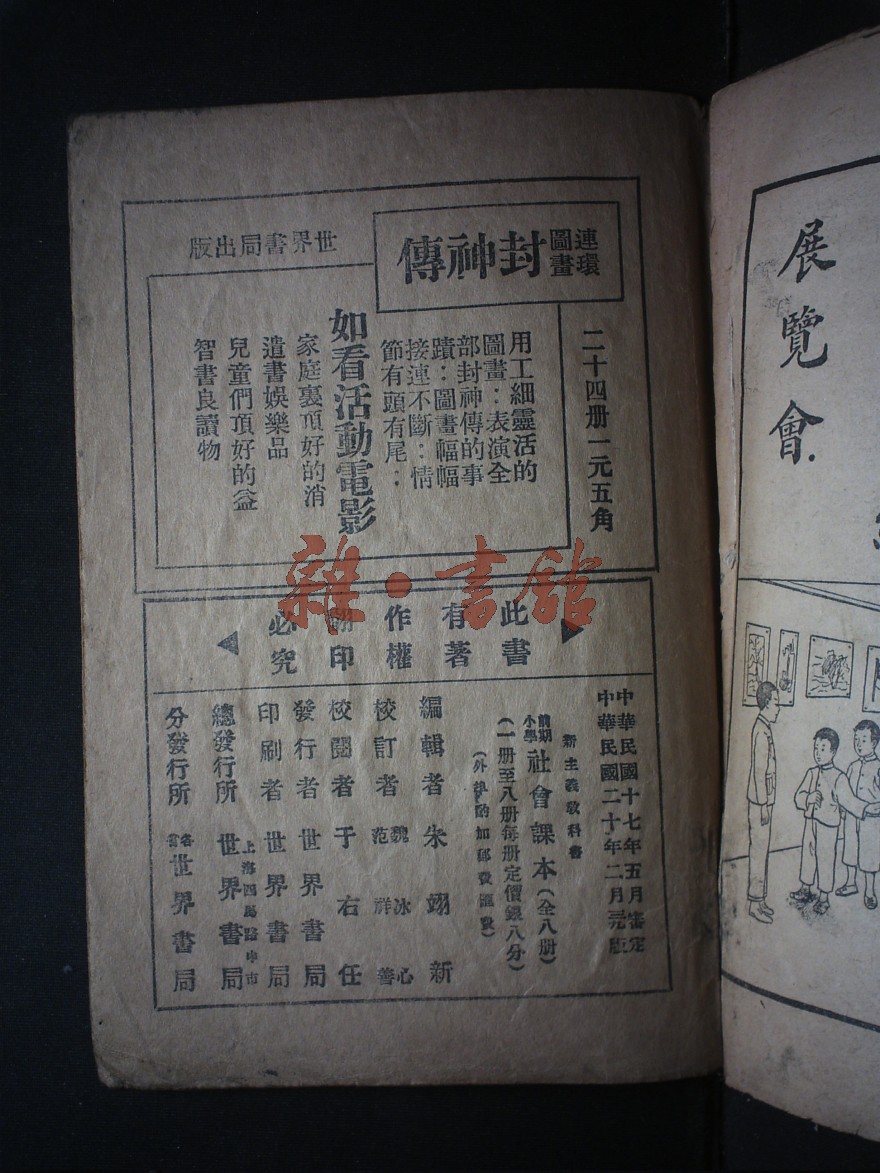 連環
圖畫
封神傳
世界書局出版
二十四册一元五角
用工細靈活的
圖畫：表演全
部封神傳的事
蹟：圖畫幅幅
接連不斷：情
節有頭有尾：
如看活動電影
家庭裏頂好的消
遣書娛樂品
兒童們頂好的益
智書良讀物
此書
有著
作權
翻印
必究
中華民國十七年五月審定
中華民國二十年二月完版
新主義教科書
前期
小學
社會課本(全八册)
(一册至八册每册定價銀八分)
(外埠酌加郵費匯費)
編輯者 朱翊新
校訂者 魏冰心
范祥善
校閱者 于右任
發行者 世界書局
印刷者 世界書局
上海四馬路中市
總發行所 世界書局
分發行所 各省 世界書局
展覽會.
雜·書館